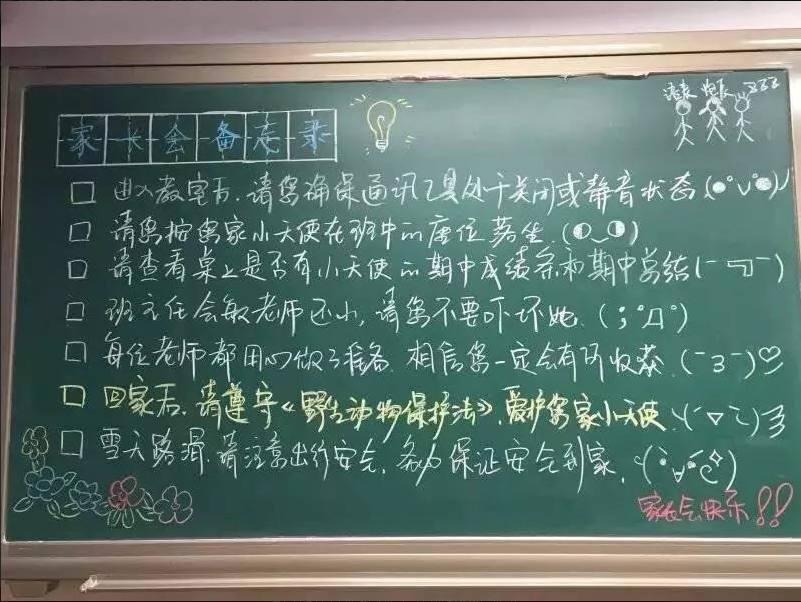 家长会备忘录
□ 进入教室后，请您确保通讯工具处于关闭或静音状态
□ 请您按您家小天使在班中的座位落坐
□ 请查看桌上是否有小天使的期中成绩条和期中总结
□ 班主任会敏老师还小，请您不要吓坏她
□ 每位老师都用心做了准备，相信您一定会有所收获
□ 回家后，请遵守《野生动物保护法》，爱护您家小天使
□ 雪天路滑，请注意出行安全，务必保证安全到家
家长会快乐!!